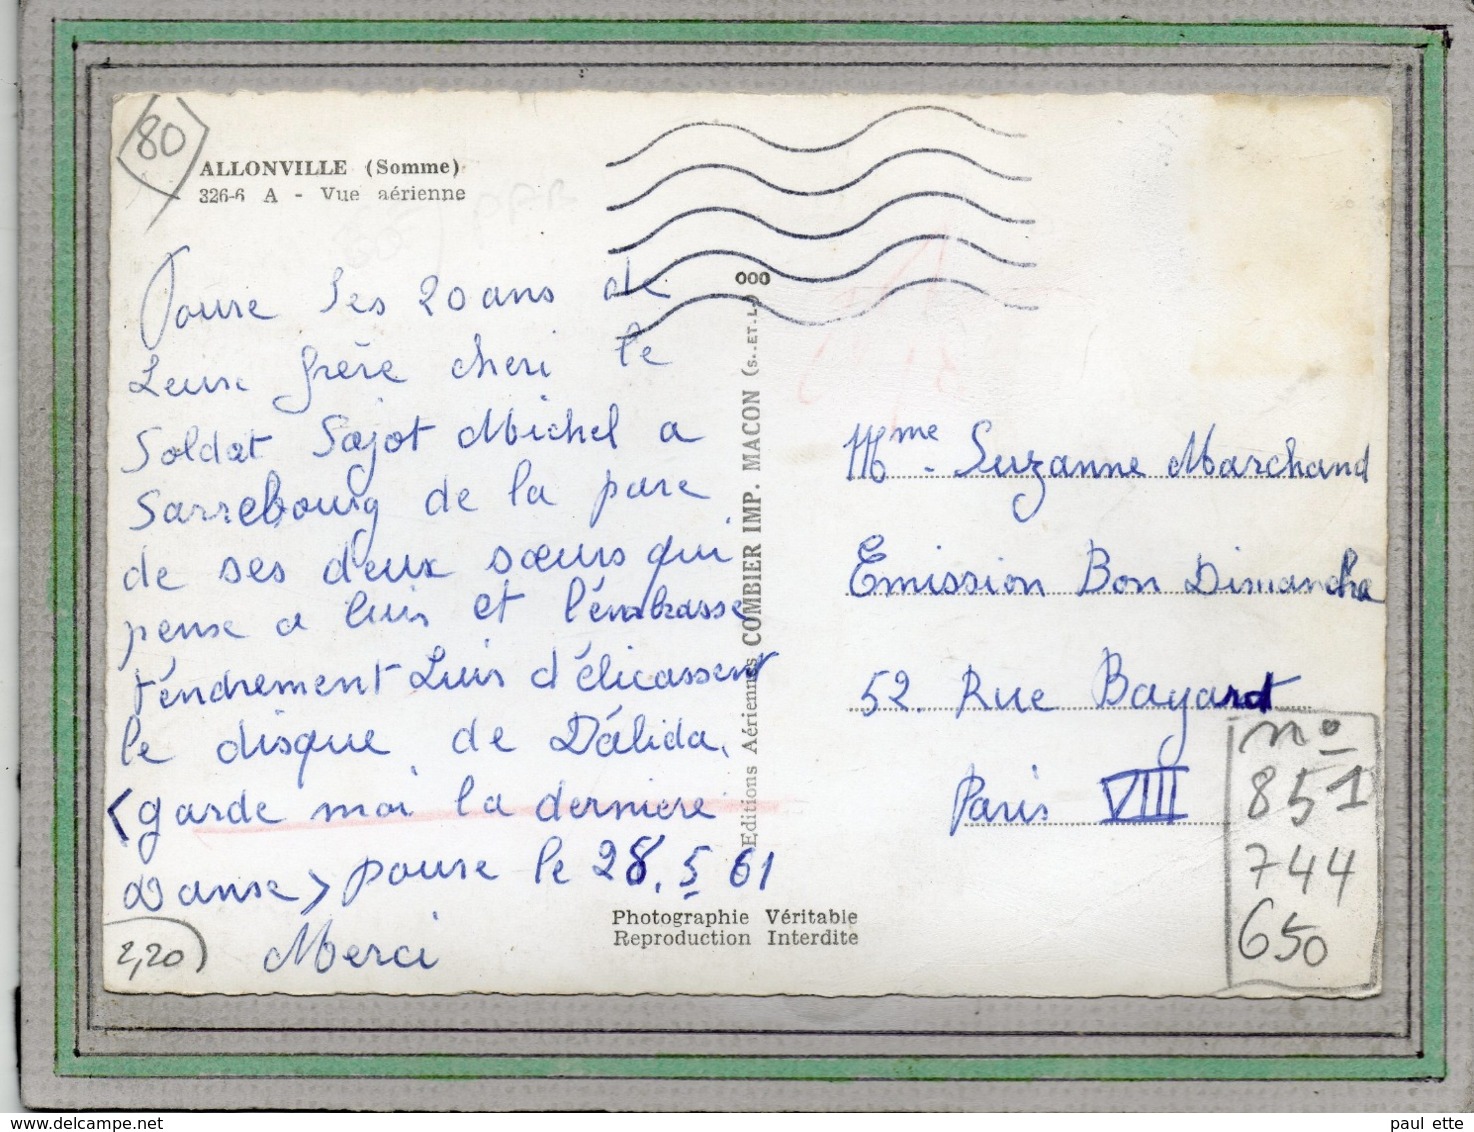 80
ALLONVILLE (Somme)
326-6 A - Vue aérienne
Poure Ses 20 ans de
Leure frère cheri le
Soldat Sajot Michel a
Sarrebourg de la pare
de ses deux sœurs qui
pense a luis et l'émbrasse
téndrement Luis d'élicassent
le disque de Dálida,
<garde moi la derniere
Danse> poure le 28.5 61
Merci
2,20
000
Editions Aériennes COMBIER IMP. MACON (S.-ET-L.)
Photographie Véritable
Reproduction Interdite
Mme. Suzanne Marchand
Emission Bon Dimanche
52. Rue Bayard
Paris VIII
no
851
744
650
paul ette